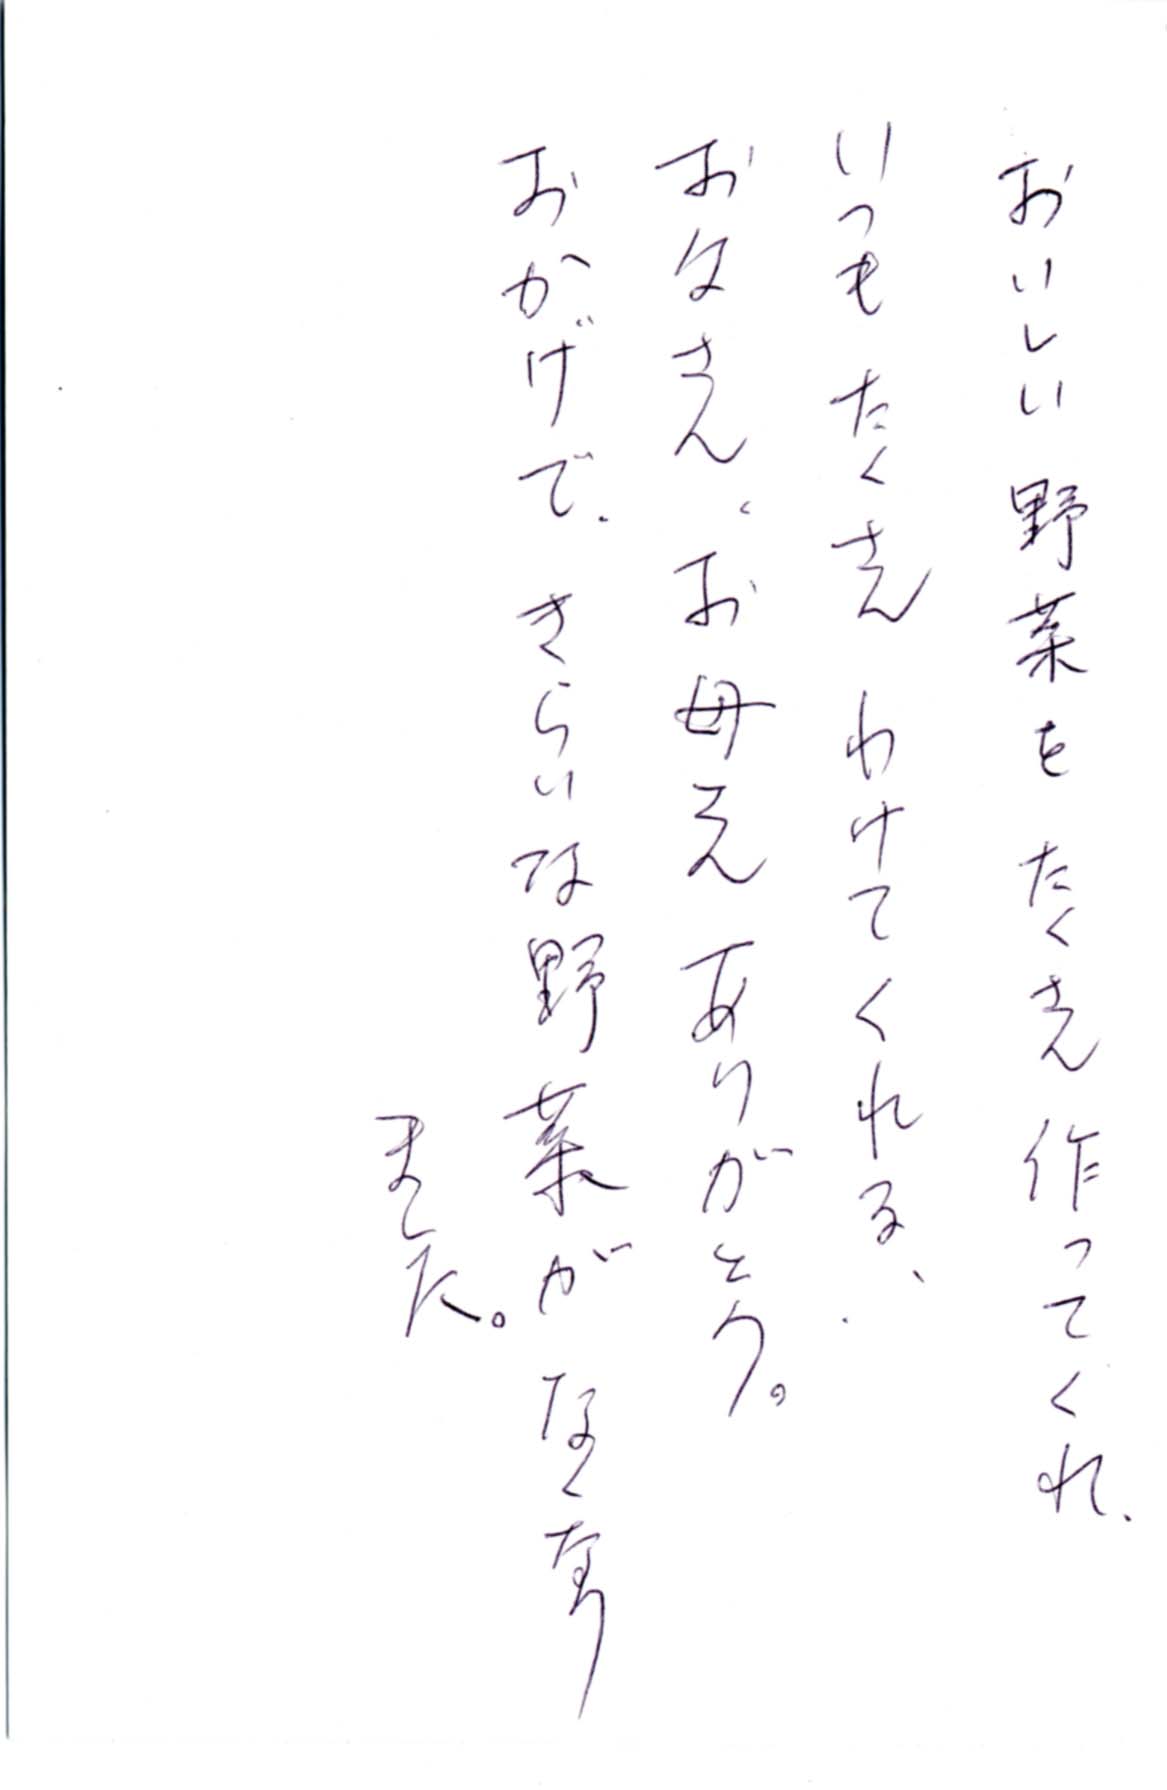 おいしい野菜をたくさん作ってくれ、
いつもたくさんわけてくれる、
お父さん、お母さんありがとう。
おかげで、きらいな野菜がなくなり
ました。